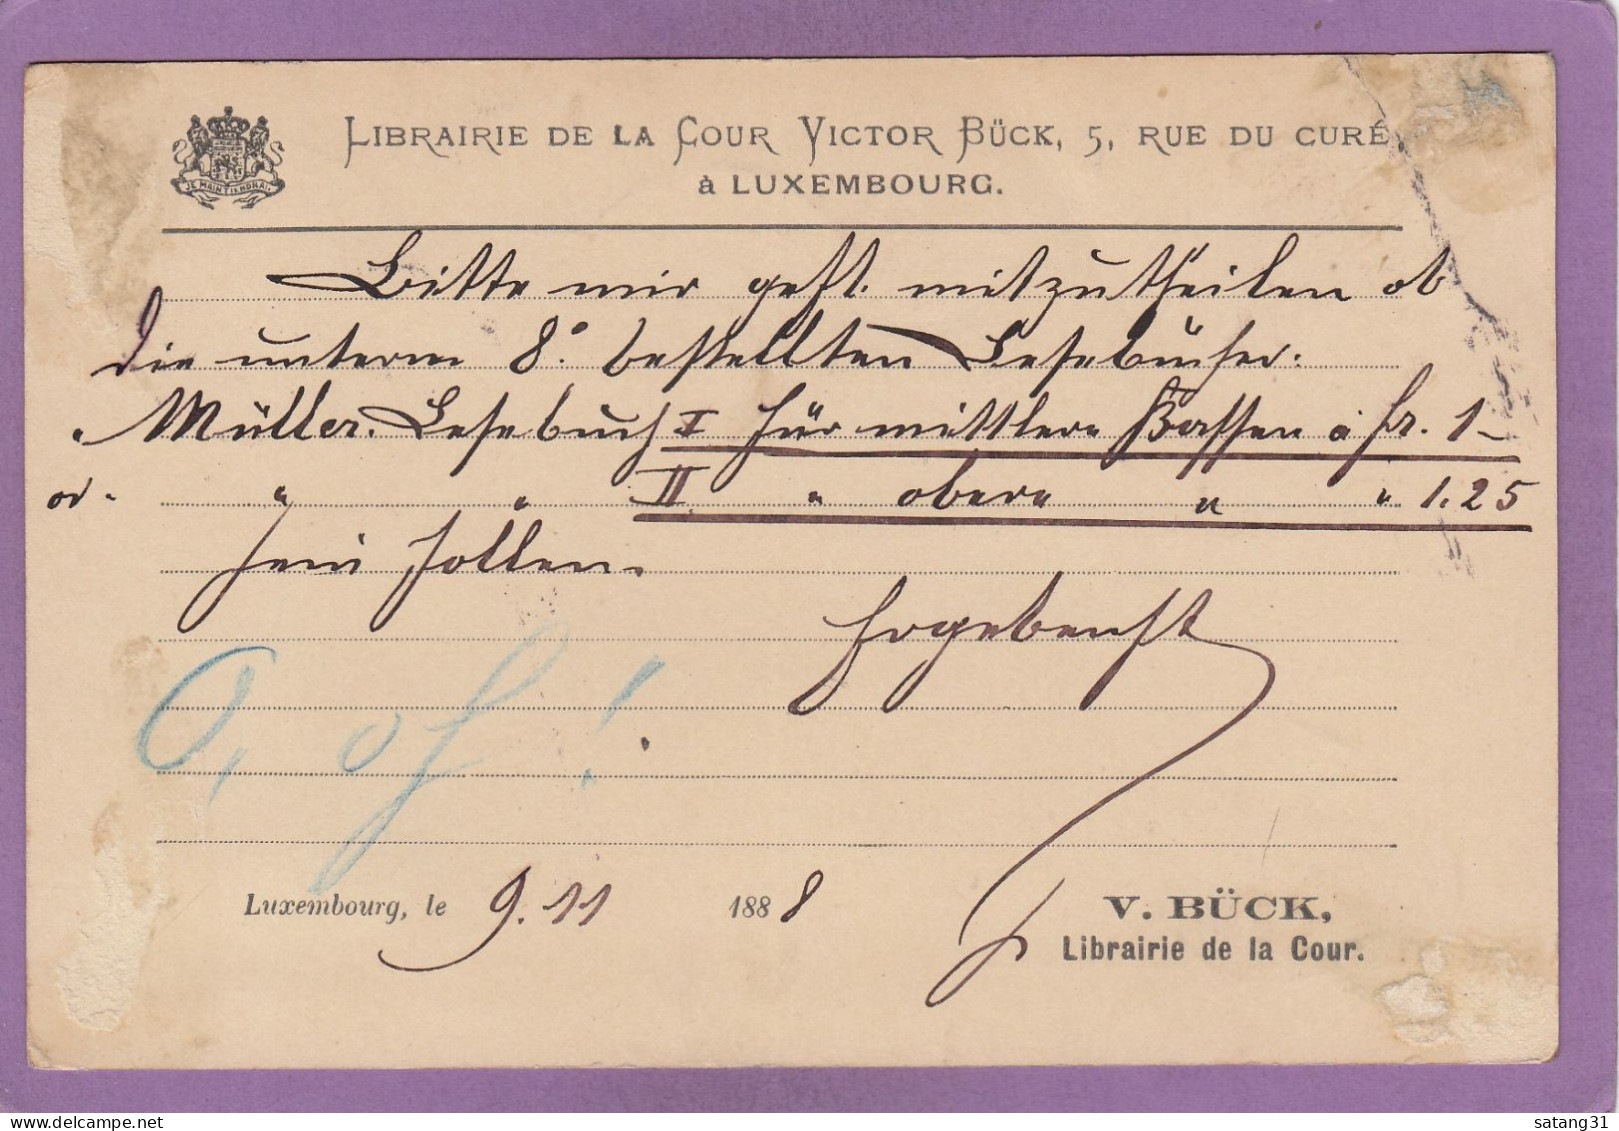 JE MAINTIENDRAI
LIBRAIRIE DE LA COUR VICTOR BÜCK, 5, RUE DU CURÉ,
à LUXEMBOURG.
Bitte mir gefl. mitzutheilen ob
die unterm 8º bestellten Lesebücher:
Müller. Lesebuch I für mittlere Classen à fr. 1-
od. " " II " obere " " 1.25
sein sollen.
Ergebenst
Luxembourg, le 9. 11 1888
V. BÜCK,
Librairie de la Cour.
satang31